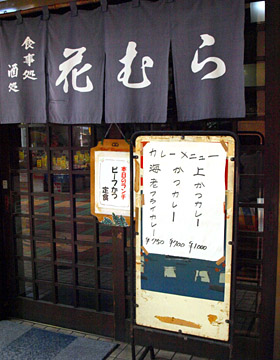 食事処
酒処
花むら
本日のランチ
ビーフかつ
定食
カレーメニュー
上かつカレー ¥1000
かつカレー ¥900
海老フライカレー ¥950